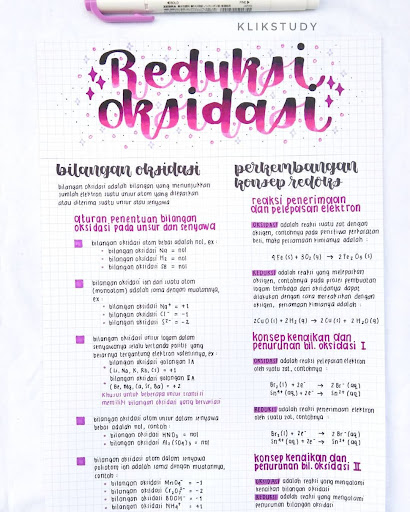 KLIKSTUDY
Reduksi
oksidasi
bilangan oksidasi
bilangan oksidasi adalah bilangan yang menunjukkan
jumlah elektron suatu unsur atom yang dilepaskan
atau diterima suatu unsur atau senyawa
aturan penentuan bilangan
oksidasi pada unsur dan senyawa
bilangan oksidasi atom bebas adalah nol, ex :
• bilangan oksidasi Na = nol
• bilangan oksidasi = nol
• bilangan oksidasi = nol
bilangan oksidasi ion dari suatu atom
(monoatom) adalah sama dengan muatannya,
ex :
• bilangan oksidasi Na⁺ = +1
• bilangan oksidasi Cl⁻ = -1
• bilangan oksidasi S²⁻ = -2
bilangan oksidasi unsur logam dalam
senyawanya selalu bertanda positif yang
besarnya tergantung elektron valensinya, ex :
• bilangan oksidasi golongan IA
(Li, Na, K, Rb, Cs) = +1
• bilangan oksidasi golongan IIA
(Be, Mg, Ca, Sr, Ba) = +2
khusus untuk beberapa unsur transisi
memiliki bilangan oksidasi yang bervariasi
bilangan oksidasi atom unsur dalam senyawa
bebas adalah nol, contoh :
• bilangan oksidasi HNO₃ = nol
• bilangan oksidasi = nol
bilangan oksidasi atom dalam senyawa
poliatom ion adalah sama dengan muatannya,
contoh :
• bilangan oksidasi MnO₄⁻ = -1
• bilangan oksidasi Cr₂O₇²⁻ = -2
• bilangan oksidasi = -1
• bilangan oksidasi NH₄⁺ = +1
perkembangan
konsep redoks
reaksi penerimaan
dan pelepasan elektron
OKSIDASI adalah reaksi suatu zat dengan
oksigen, contohnya pada peristiwa perkaratan
besi, maka persamaan kimianya adalah :
4 Fe (s) + 3O₂ (g) → 2 Fe₂O₃ (s)
REDUKSI adalah reaksi yang melepaskan
oksigen, contohnya pada proses pembuatan
logam tembaga dan oksidanya dapat
dilakukan dengan cara mereaksikan dengan
oksigen, persamaan kimianya adalah :
2CuO (s) + 2H₂ (g) → 2Cu (s) + 2H₂O (g)
konsep kenaikan dan
penurunan bil. oksidasi I
OKSIDASI adalah reaksi pelepasan elektron
oleh suatu zat, contohnya :
Br₂ (l) + 2e⁻ → 2 Br⁻ (aq)
Sn⁴⁺ (aq) + 2e⁻ → Sn²⁺ (aq)
REDUKSI adalah reaksi penerimaan elektron
oleh suatu zat, contohnya :
Br₂ (l) + 2e⁻ → 2 Br⁻ (aq)
Sn⁴⁺ (aq) + 2e⁻ → Sn²⁺ (aq)
konsep kenaikan dan
penurunan bil. oksidasi II
OKSIDASI adalah reaksi yang mengalami
kenaikan bilangan oksidasi
REDUKSI adalah reaksi yang mengalami
penurunan bilangan oksidasi